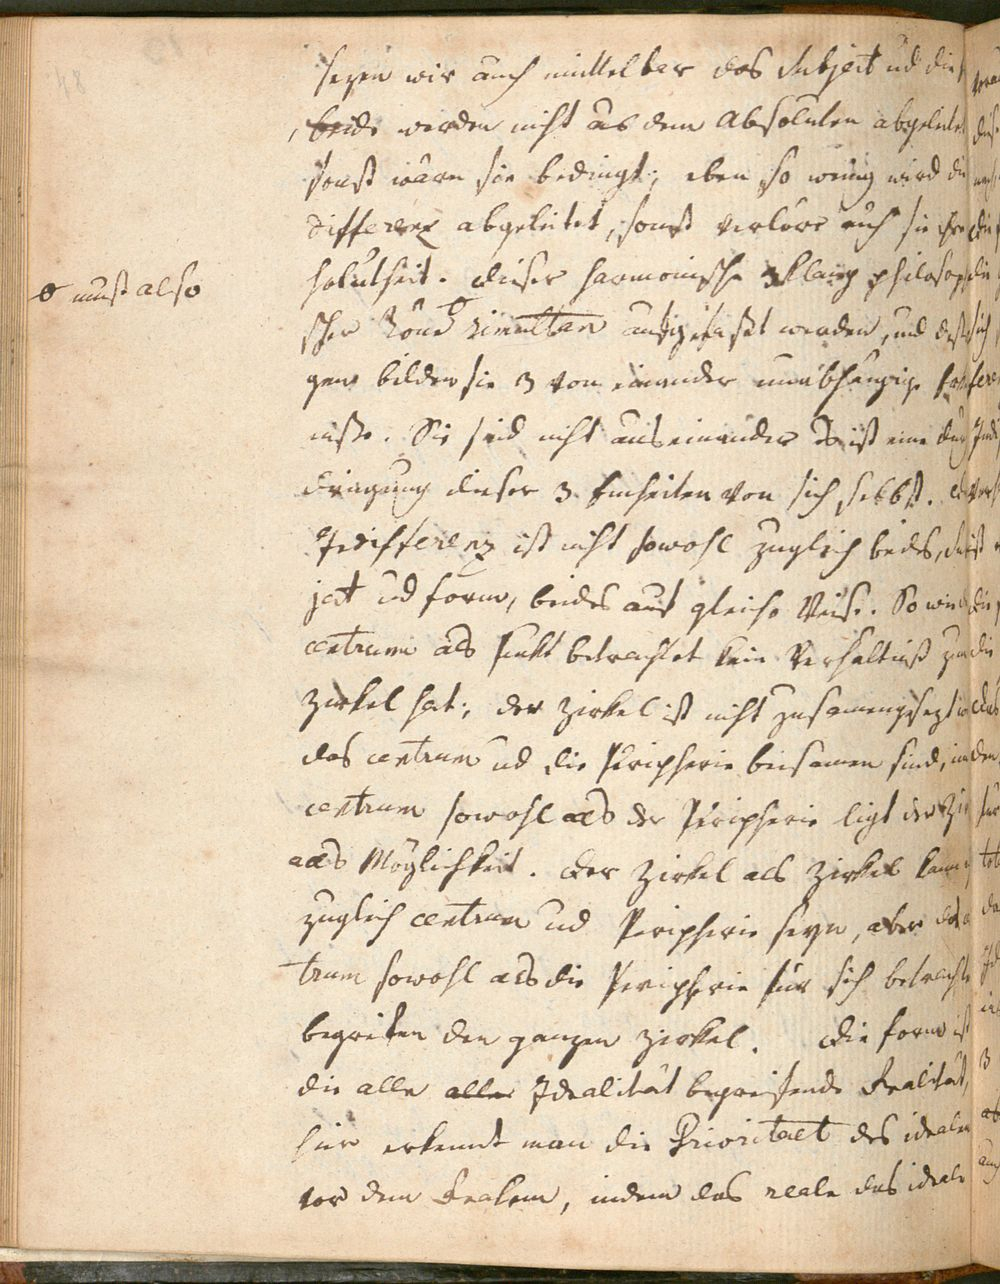 setzen wir auch mittelbar das Subject ud die
beide werden nicht aus dem Absoluten abgeleitet
sonst wären sie bedingt; eben so wenig wird die
differenz abgeleitet, sonst verlöre auch sie ihre
solutheit. Dieser harmonische 3klang philosophi
muß also
scher Töne simultan aufgefaßt werden, und deß
gen bilden sie 3 von einander unabhängige
niße. Sie sind nicht aus einander Es ist eine Durch
dringung dieser 3 Einheiten von sich selbst. Die
Indifferenz ist nicht sowohl zugleich beides, Sub
ject ud Form, beides auf gleiche Weise. So wie d
centrum als Punkt betrachtet kein Verhältniß zum
Zirkel hat; der Zirkel ist nicht zusamengesezt
das centrum ud die Peripherie beisamen sind, im
centrum sowohl als der Peripherie ligt der Zir
als Möglichkeit. Der Zirkel als Zirkel kann
zugleich centrum ud Peripherie seyn, aber das cen
trum sowohl als die Peripherie für sich betrachtet
begreifen den ganzen Zirkel. Die Form ist
die alle aller Idealität begreifende Realität,
hier erkennt man die Prioritaet des idealen
vor dem Realem, indem das reale das ideale